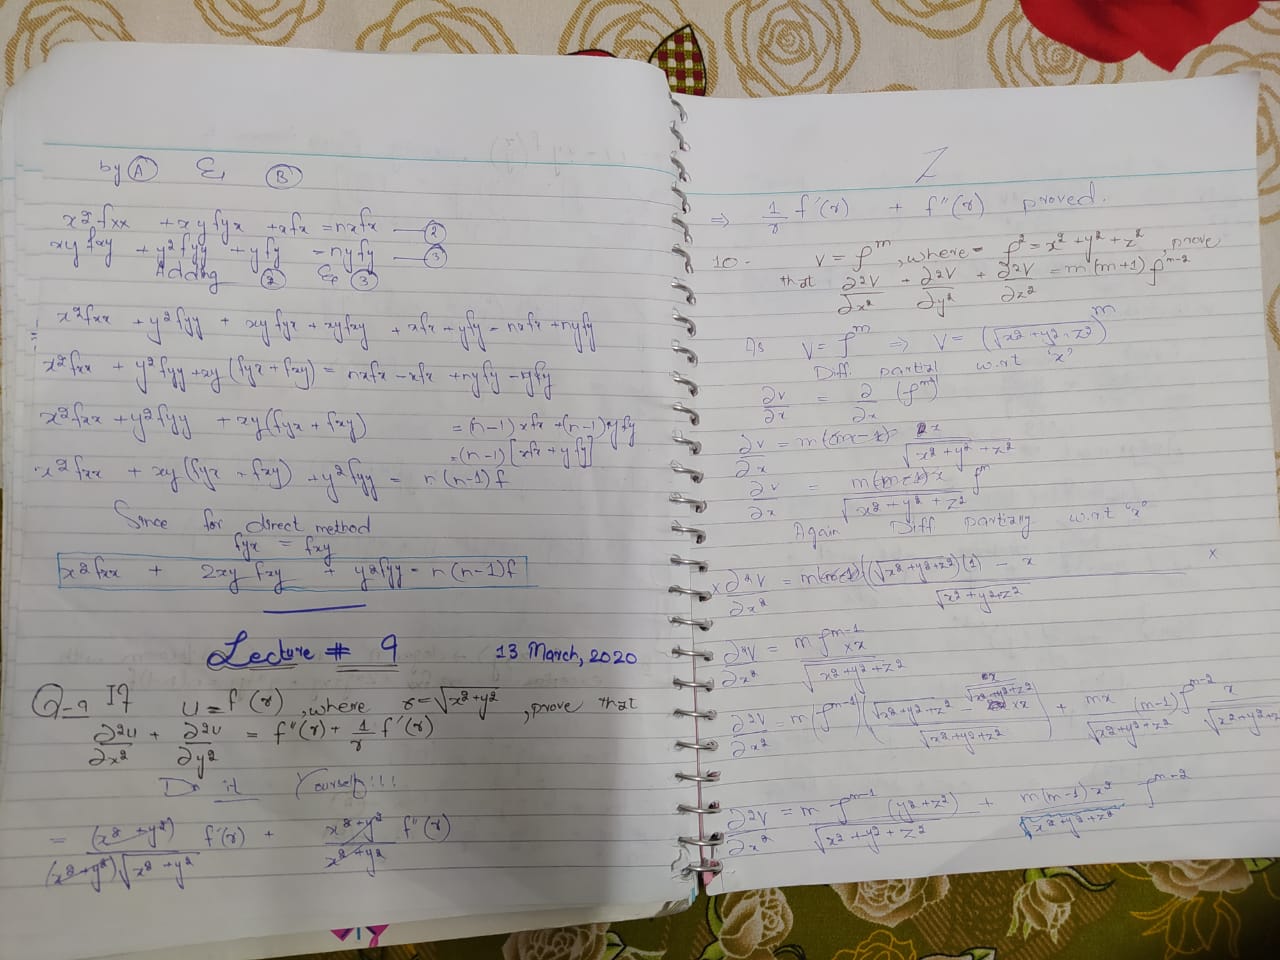 by Ⓐ & Ⓑ
x² fxx + xy fyx + xfx = nxfx — ②
xy fxy + y² fyy + yfy = nyfy — ③
Adding ② & ③
x² fxx + y² fyy + xy fyx + xy fxy + xfx + yfy = nxfx + nyfy
x² fxx + y² fyy + xy (fyx + fxy) = nxfx - xfx + nyfy - yfy
x² fxx + y² fyy + xy (fyx + fxy) = (n-1) xfx + (n-1) yfy
= (n-1) [xfx + yfy]
x² fxx + xy (fyx + fxy) + y² fyy = n(n-1) f
Since for direct method
fyx = fxy
x² fxx + 2xy fxy + y² fyy = n(n-1) f
Lecture # 9 13 March, 2020
Q-9 If u = f(r), where r = √(x²+y²), prove that
∂²u/∂x² + ∂²u/∂y² = f''(r) + 1/r f'(r)
Do it Yourself!!!
= (x²+y²)/((x²+y²)√(x²+y²)) f'(r) + (x²+y²)/(x²+y²) f''(r)
⇒ 1/r f'(r) + f''(r) proved.
10- V = ρ^m, where ρ² = x²+y²+z², prove
that ∂²V/∂x² + ∂²V/∂y² + ∂²V/∂z² = m(m+1) ρ^(m-2)
As V = ρ^m ⇒ V = (√(x²+y²+z²))^m
Diff partial w.r.t 'x'
∂V/∂x = ∂/∂x (ρ^m)
∂V/∂x = 2x/√(x²+y²+z²)
∂V/∂x = x/√(x²+y²+z²)
Again Diff partially w.r.t 'x'
x ∂²V/∂x² = ((√(x²+y²+z²)(1) - x)/√(x²+y²+z²) x
∂²V/∂x² = m ρ^(m-1) × x/√(x²+y²+z²)
∂²V/∂x² = m(ρ^(m-1)) (√(x²+y²+z²) - x/√(x²+y²+z²) × x)/√(x²+y²+z²) + mx/√(x²+y²+z²) (m-1) ρ^(m-2) x/√(x²+y²+z²)
∂²V/∂x² = m ρ^(m-1) (y²+z²)/√(x²+y²+z²) + m(m-1) x²/(x²+y²+z²) ρ^(m-2)